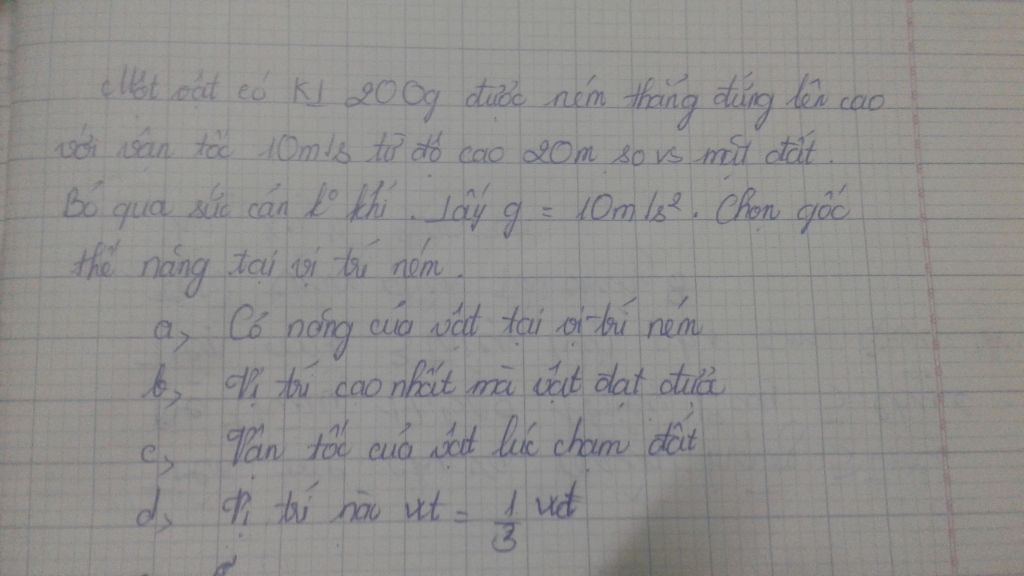 Một vật có KL 200g được ném thẳng đứng lên cao
với vận tốc 10m/s từ độ cao 20m so vs mặt đất.
Bỏ qua sức cản k° khí. Lấy g = 10m/s². Chọn gốc
thế năng tại vị trí ném.
a, Cơ năng của vật tại vị trí ném
b, Vị trí cao nhất mà vật đạt được
c, Vận tốc của vật lúc chạm đất
d, Vị trí nào wt = 1/3 wđ